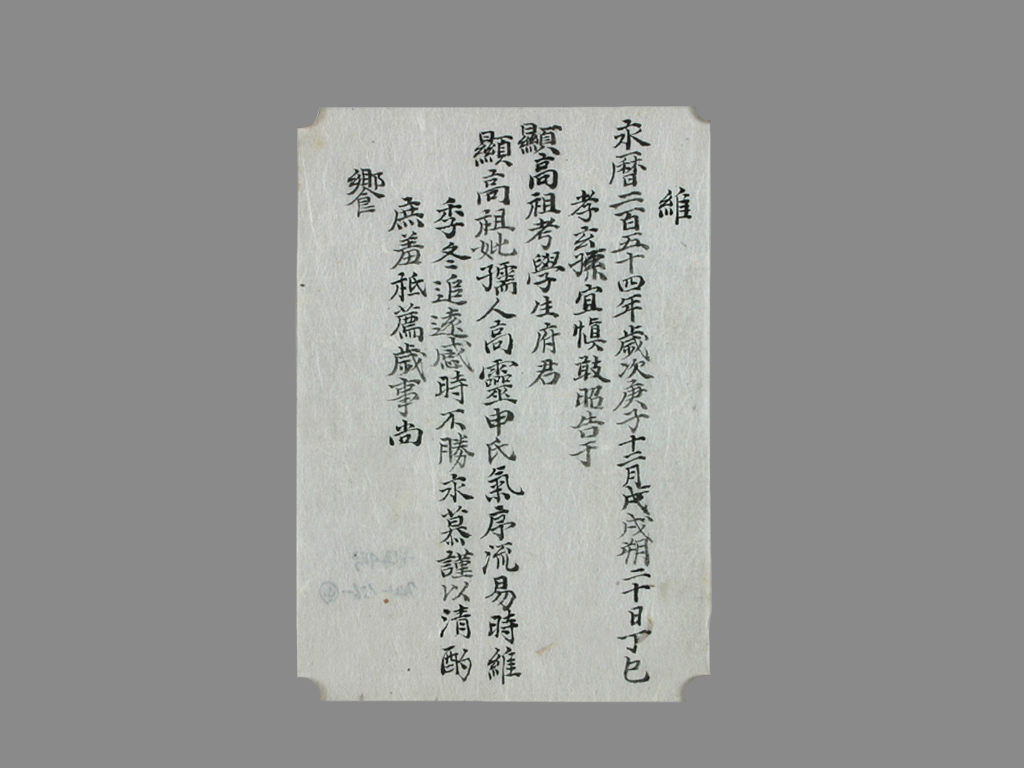 維
永曆二百五十四年歲次庚子十二月戊戌朔二十日丁巳
孝玄孫宜愼敢昭告于
顯高祖考學生府君
顯高祖妣孺人高靈申氏氣序流易時維
季冬追遠感時不勝永慕謹以清酌
庶羞秪薦歲事尚
饗